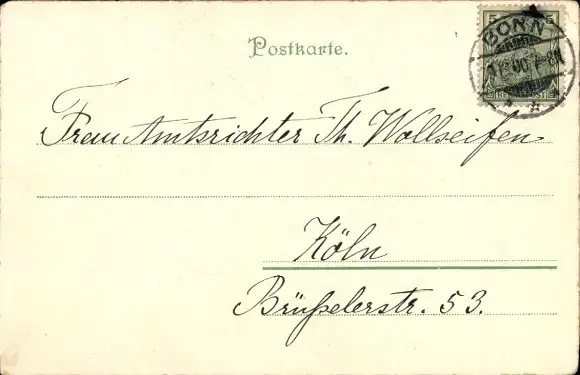 5 5
BONN
Postkarte.
Frau Amtsrichter Th. Wollseifen
Köln
Brüßelerstr. 53.